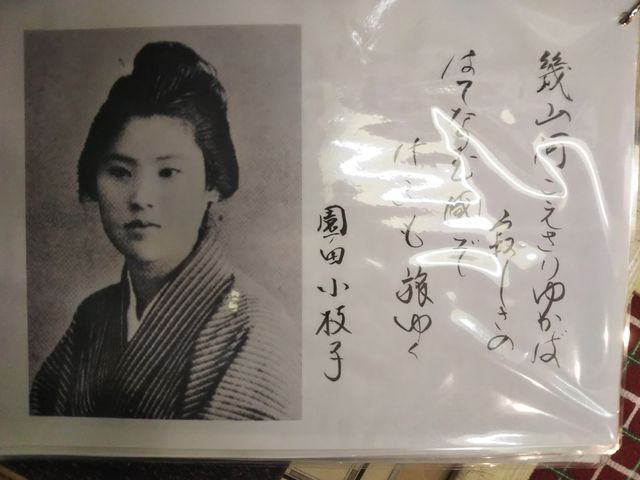 幾山河こえさりゆかば
寂しさの
はてなむ國ぞ
けふも旅ゆく
園田小枝子